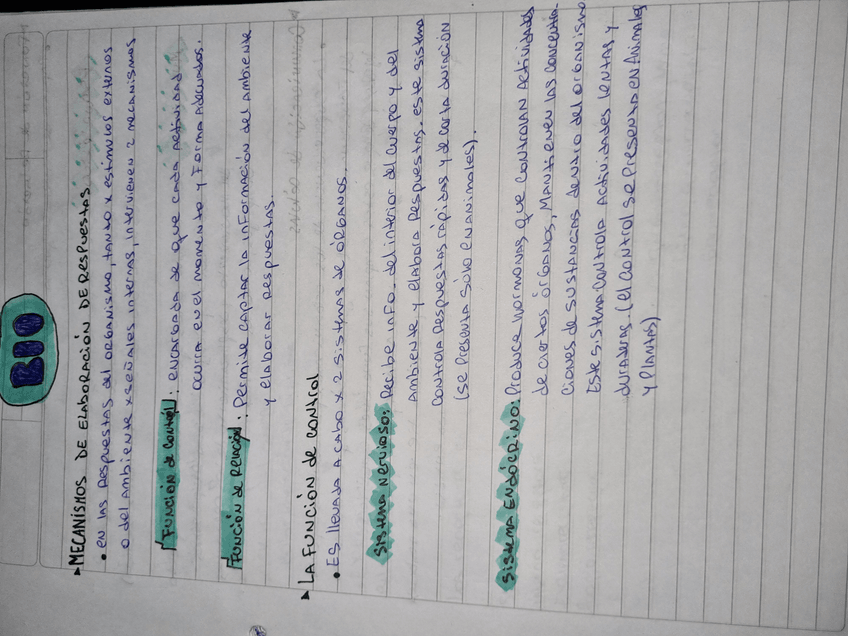 BIO
▸ MECANÍSMOS DE ELABORACIÓN DE RESPUESTAS.
• EN LAS RESPUESTAS DEL ORGANISMO, TANTO X ESTIMULOS EXTERNOS
O DEL AMBIENTE X SEÑALES INTERNAS, INTERVIENEN 2 MECANISMOS
FUNCIÓN de CONTROL: ENCARGADA DE QUE CADA ACTIVIDAD
OCURRA EN EL MOMENTO Y FORMA ADECUADOS.
FUNCIÓN de RELACIÓN: PERMITE CAPTAR LA INFORMACIÓN DEL AMBIENTE
Y ELABORAR RESPUESTAS.
▸ LA FUNCIÓN de CONTROL
• ES LLEVADA A CABO X 2 SISTEMAS DE ÓRGANOS.
SISTEMA NERVIOSO: RECIBE INFO. DEL INTERIOR DEL CUERPO Y DEL
AMBIENTE Y ELABORA RESPUESTAS. ESTE SISTEMA
CONTROLA RESPUESTAS RÁPIDAS Y DE CORTA DURACIÓN
(SE PRESENTA SÓLO EN ANIMALES).
SISTEMA ENDÓCRINO: PRODUCE HORMONAS QUE CONTROLAN ACTIVIDADES
DE CIERTOS ÓRGANOS, MANTIENEN LAS CONCENTRA-
CIONES DE SUSTANCIAS DENTRO DEL ORGANISMO
ESTE SISTEMA CONTROLA ACTIVIDADES LENTAS Y
DURADERAS (EL CONTROL SE PRESENTA EN ANIMALES
Y PLANTAS)